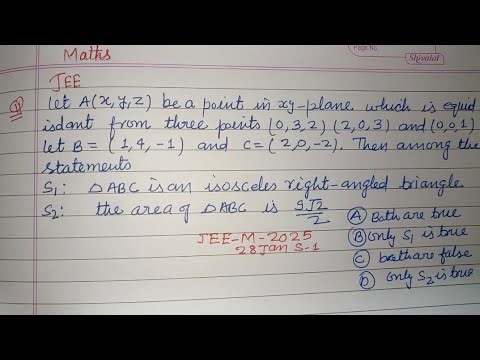 Page No.
Shivalal
Maths
JEE
Q let A(x,y,z) be a point in xy-plane which is equid
isdant from three points (0,3,2) (2,0,3) and (0,0,1)
let B = (1,4,-1) and C = (2,0,-2). Then among the
statements
S1: △ABC is an isosceles right-angled triangle.
S2: the area of △ABC is 9√2/2
A Both are true
B only S1 is true
C both are false
D only S2 is true
JEE-M-2025
28 Jan S-1